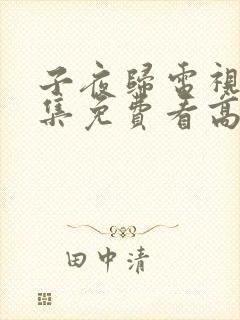 子夜歸電視
集免費看高
田中清